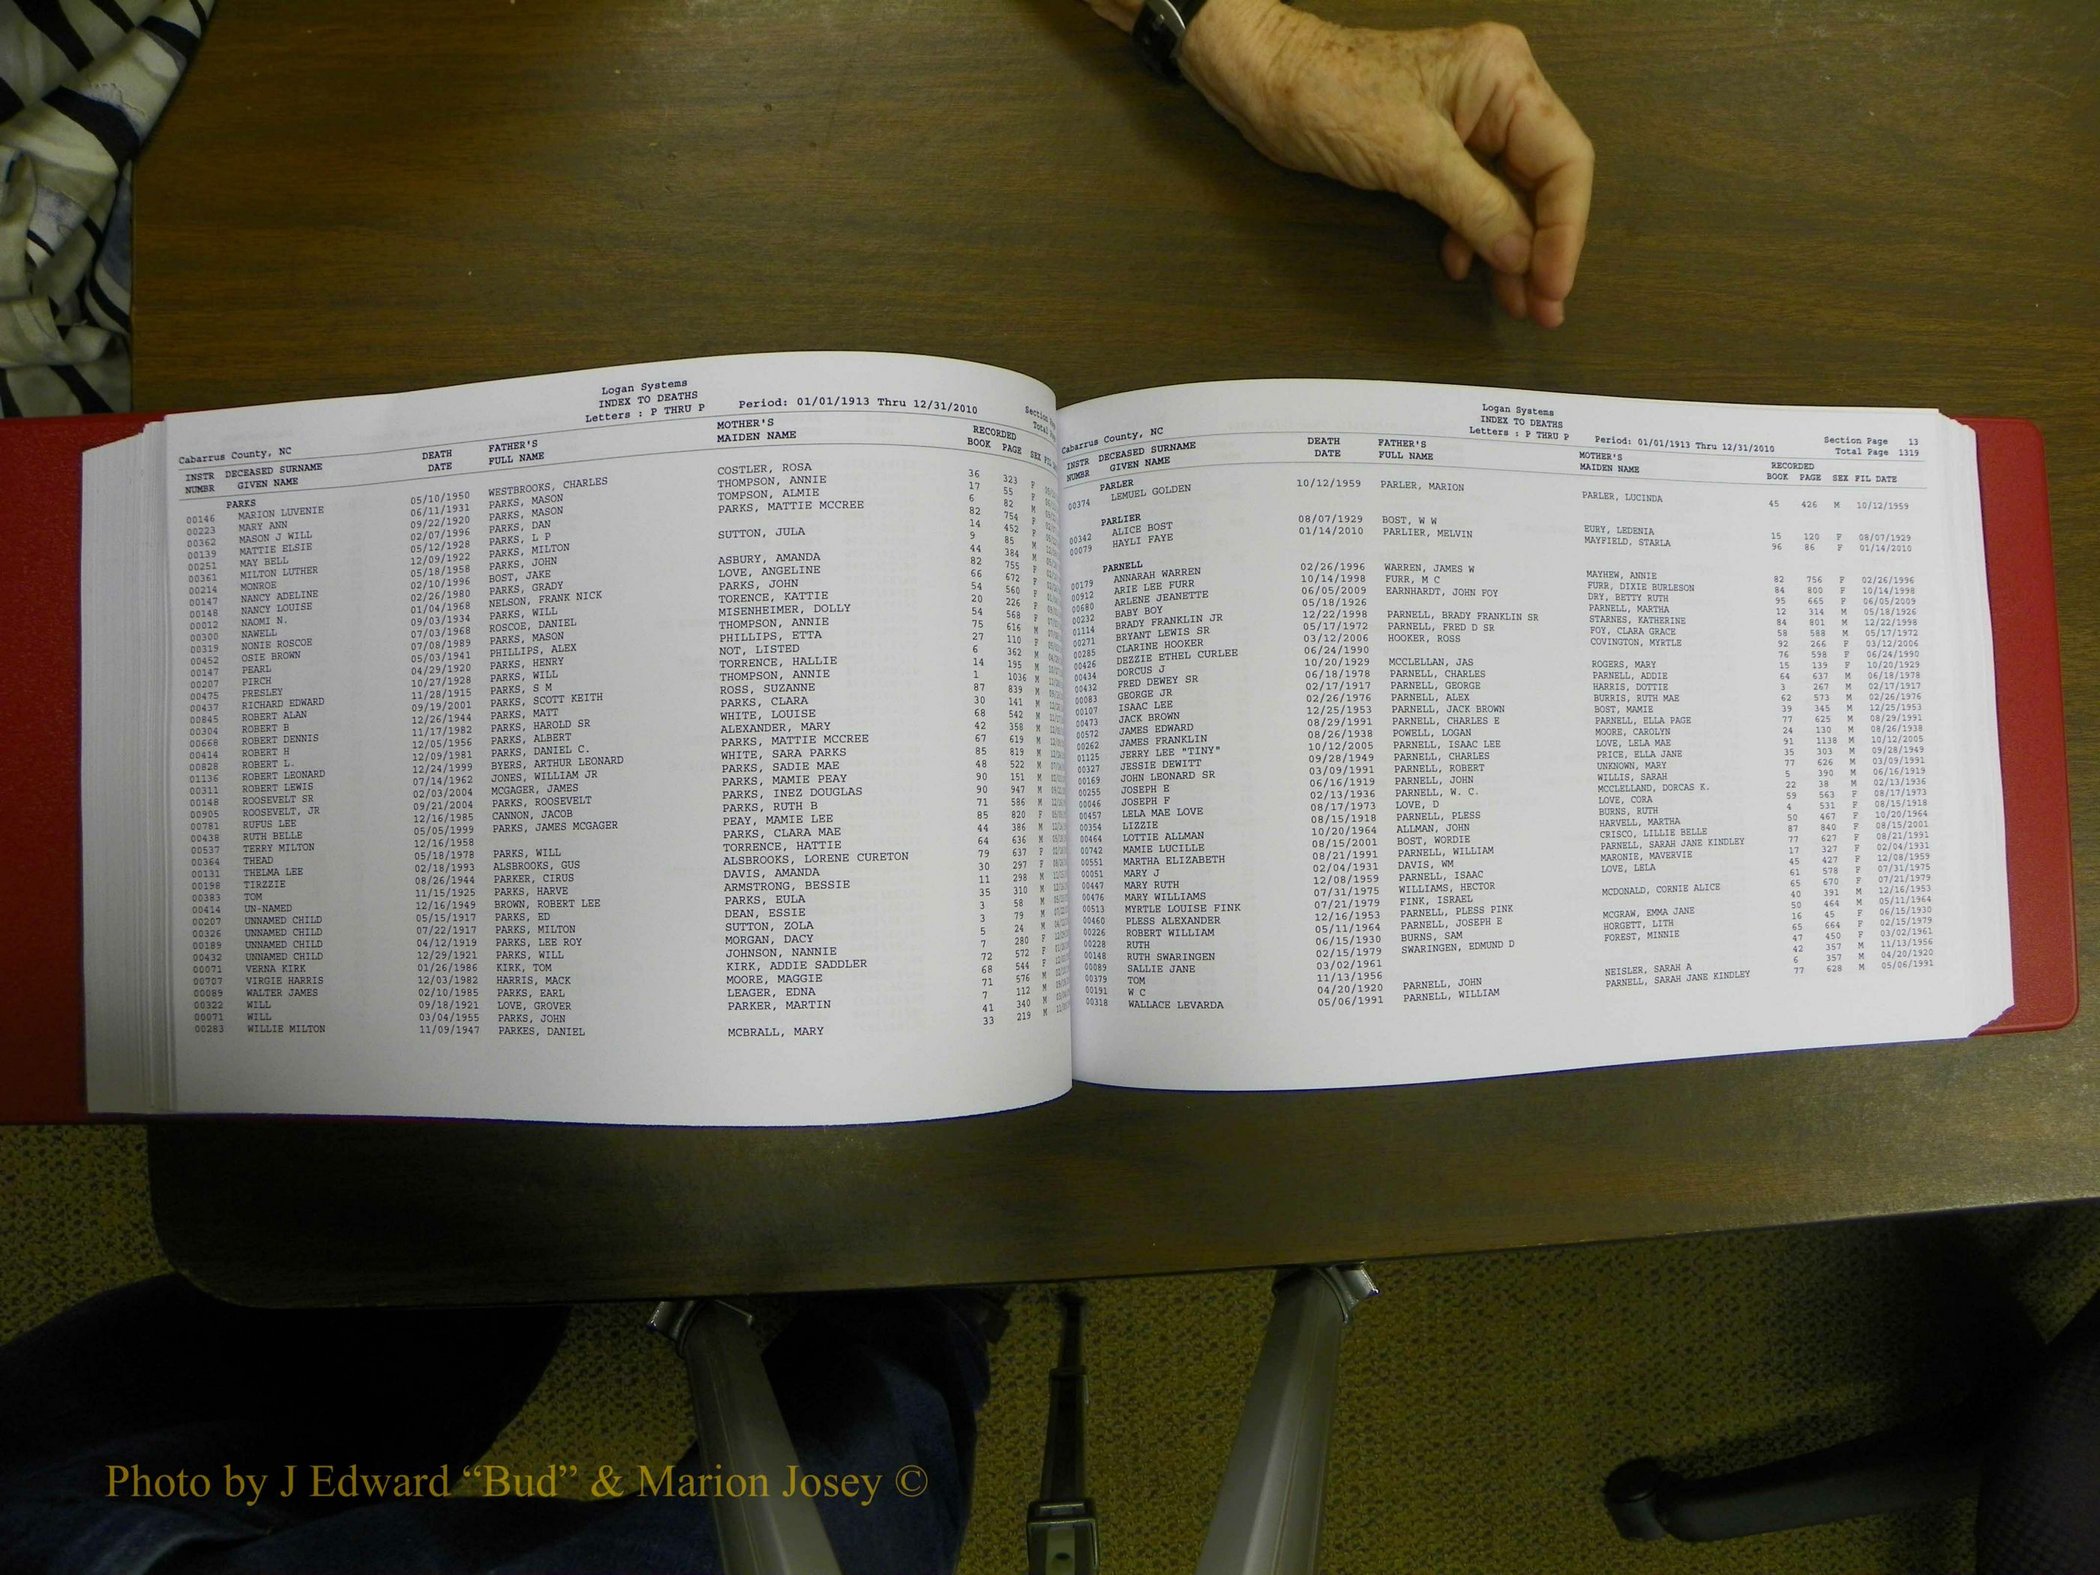 Logan Systems
INDEX TO DEATHS
Letters : P THRU P Period: 01/01/1913 Thru 12/31/2010
Cabarrus County, NC
INSTR DECEASED SURNAME DEATH FATHER'S MOTHER'S RECORDED
NUMBR GIVEN NAME DATE FULL NAME MAIDEN NAME BOOK PAGE SEX
PARKS
00146 MARION LUVENIE 05/10/1950 WESTBROOKS, CHARLES COSTLER, ROSA 36 323 F
00223 MARY ANN 06/11/1931 PARKS, MASON THOMPSON, ANNIE 17 55 F
00362 MASON J WILL 09/22/1920 PARKS, MASON TOMPSON, ALMIE 6 82 M
00139 MATTIE ELSIE 02/07/1996 PARKS, DAN PARKS, MATTIE MCCREE 82 754 F
00251 MAY BELL 05/12/1928 PARKS, L P 14 452 F
00361 MILTON LUTHER 12/09/1922 PARKS, MILTON SUTTON, JULA 9 85 M
00214 MONROE 05/18/1958 PARKS, JOHN 44 384 M
00147 NANCY ADELINE 02/10/1996 BOST, JAKE ASBURY, AMANDA 82 755 F
00148 NANCY LOUISE 02/26/1980 PARKS, GRADY LOVE, ANGELINE 66 672 F
00012 NAOMI N. 01/04/1968 NELSON, FRANK NICK PARKS, JOHN 54 560 F
00300 NAWELL 09/03/1934 PARKS, WILL TORENCE, KATTIE 20 226 F
00319 NONIE ROSCOE 07/03/1968 ROSCOE, DANIEL MISENHEIMER, DOLLY 54 568 F
00452 OSIE BROWN 07/08/1989 PARKS, MASON THOMPSON, ANNIE 75 616 M
00147 PEARL 05/03/1941 PHILLIPS, ALEX PHILLIPS, ETTA 27 110 F
00207 PIRCH 04/29/1920 PARKS, HENRY NOT, LISTED 6 362 M
00475 PRESLEY 10/27/1928 PARKS, WILL TORRENCE, HALLIE 14 195 M
00437 RICHARD EDWARD 11/28/1915 PARKS, S M THOMPSON, ANNIE 1 1036 M
00845 ROBERT ALAN 09/19/2001 PARKS, SCOTT KEITH ROSS, SUZANNE 87 839 M
00304 ROBERT B 12/26/1944 PARKS, MATT PARKS, CLARA 30 141 M
00668 ROBERT DENNIS 11/17/1982 PARKS, HAROLD SR WHITE, LOUISE 68 542 M
00414 ROBERT H 12/05/1956 PARKS, ALBERT ALEXANDER, MARY 42 358 M
00828 ROBERT L. 12/09/1981 PARKS, DANIEL C. PARKS, MATTIE MCCREE 67 619 M
01136 ROBERT LEONARD 12/24/1999 BYERS, ARTHUR LEONARD WHITE, SARA PARKS 85 819 M
00311 ROBERT LEWIS 07/14/1962 JONES, WILLIAM JR PARKS, SADIE MAE 48 522 M
00148 ROOSEVELT SR 02/03/2004 MCGAGER, JAMES PARKS, MAMIE PEAY 90 151 M
00905 ROOSEVELT, JR 09/21/2004 PARKS, ROOSEVELT PARKS, INEZ DOUGLAS 90 947 M
00781 RUFUS LEE 12/16/1985 CANNON, JACOB PARKS, RUTH B 71 586 M
00438 RUTH BELLE 05/05/1999 PARKS, JAMES MCGAGER PEAY, MAMIE LEE 85 820 F
00537 TERRY MILTON 12/16/1958 PARKS, CLARA MAE 44 386 M
00364 THEAD 05/18/1978 PARKS, WILL TORRENCE, HATTIE 64 636 M
00131 THELMA LEE 02/18/1993 ALSBROOKS, GUS ALSBROOKS, LORENE CURETON 79 637 F
00198 TIRZZIE 08/26/1944 PARKER, CIRUS DAVIS, AMANDA 30 297 F
00383 TOM 11/15/1925 PARKS, HARVE ARMSTRONG, BESSIE 11 298 M
00414 UN-NAMED 12/16/1949 BROWN, ROBERT LEE PARKS, EULA 35 310 M
00207 UNNAMED CHILD 05/15/1917 PARKS, ED DEAN, ESSIE 3 58 M
00326 UNNAMED CHILD 07/22/1917 PARKS, MILTON SUTTON, ZOLA 3 79 M
00189 UNNAMED CHILD 04/12/1919 PARKS, LEE ROY MORGAN, DACY 5 24 M
00432 UNNAMED CHILD 12/29/1921 PARKS, WILL JOHNSON, NANNIE 7 280 F
00071 VERNA KIRK 01/26/1986 KIRK, TOM KIRK, ADDIE SADDLER 72 572 F
00707 VIRGIE HARRIS 12/03/1982 HARRIS, MACK MOORE, MAGGIE 68 544 F
00089 WALTER JAMES 02/10/1985 PARKS, EARL LEAGER, EDNA 71 576 M
00322 WILL 09/18/1921 LOVE, GROVER PARKER, MARTIN 7 112 M
00071 WILL 03/04/1955 PARKS, JOHN 41 340 M
00283 WILLIE MILTON 11/09/1947 PARKES, DANIEL MCBRALL, MARY 33 219 M
Logan Systems
INDEX TO DEATHS
Letters : P THRU P Period: 01/01/1913 Thru 12/31/2010
Section Page 13
Total Page 1319
Cabarrus County, NC
INSTR DECEASED SURNAME DEATH FATHER'S MOTHER'S RECORDED
NUMBR GIVEN NAME DATE FULL NAME MAIDEN NAME BOOK PAGE SEX FIL DATE
PARLER
00374 LEMUEL GOLDEN 10/12/1959 PARLER, MARION PARLER, LUCINDA 45 426 M 10/12/1959
PARLIER
00342 ALICE BOST 08/07/1929 BOST, W W EURY, LEDENIA 15 120 F 08/07/1929
00079 HAYLI FAYE 01/14/2010 PARLIER, MELVIN MAYFIELD, STARLA 96 86 F 01/14/2010
PARNELL
00179 ANNARAH WARREN 02/26/1996 WARREN, JAMES W MAYHEW, ANNIE 82 756 F 02/26/1996
00912 ARIE LEE FURR 10/14/1998 FURR, M C FURR, DIXIE BURLESON 84 800 F 10/14/1998
00680 ARLENE JEANETTE 06/05/2009 EARNHARDT, JOHN FOY DRY, BETTY RUTH 95 665 F 06/05/2009
00232 BABY BOY 05/18/1926 PARNELL, MARTHA 12 314 M 05/18/1926
01114 BRADY FRANKLIN JR 12/22/1998 PARNELL, BRADY FRANKLIN SR STARNES, KATHERINE 84 801 M 12/22/1998
00271 BRYANT LEWIS SR 05/17/1972 PARNELL, FRED D SR FOY, CLARA GRACE 58 588 M 05/17/1972
00285 CLARINE HOOKER 03/12/2006 HOOKER, ROSS COVINGTON, MYRTLE 92 266 F 03/12/2006
00426 DEZZIE ETHEL CURLEE 06/24/1990 76 598 F 06/24/1990
00434 DORCUS J 10/20/1929 MCCLELLAN, JAS ROGERS, MARY 15 139 F 10/20/1929
00432 FRED DEWEY SR 06/18/1978 PARNELL, CHARLES PARNELL, ADDIE 64 637 M 06/18/1978
00083 GEORGE JR 02/17/1917 PARNELL, GEORGE HARRIS, DOTTIE 3 267 M 02/17/1917
00107 ISAAC LEE 02/26/1976 PARNELL, ALEX BURRIS, RUTH MAE 62 573 M 02/26/1976
00473 JACK BROWN 12/25/1953 PARNELL, JACK BROWN BOST, MAMIE 39 345 M 12/25/1953
00572 JAMES EDWARD 08/29/1991 PARNELL, CHARLES E PARNELL, ELLA PAGE 77 625 M 08/29/1991
00262 JAMES FRANKLIN 08/26/1938 POWELL, LOGAN MOORE, CAROLYN 24 130 M 08/26/1938
01125 JERRY LEE "TINY" 10/12/2005 PARNELL, ISAAC LEE LOVE, LELA MAE 91 1138 M 10/12/2005
00327 JESSIE DEWITT 09/28/1949 PARNELL, CHARLES PRICE, ELLA JANE 35 303 M 09/28/1949
00169 JOHN LEONARD SR 03/09/1991 PARNELL, ROBERT UNKNOWN, MARY 77 626 M 03/09/1991
00255 JOSEPH E 06/16/1919 PARNELL, JOHN WILLIS, SARAH 5 390 M 06/16/1919
00046 JOSEPH F 02/13/1936 PARNELL, W. C. MCCLELLAND, DORCAS K. 22 38 M 02/13/1936
00457 LELA MAE LOVE 08/17/1973 LOVE, D LOVE, CORA 59 563 F 08/17/1973
00354 LIZZIE 08/15/1918 PARNELL, PLESS BURNS, RUTH 4 531 F 08/15/1918
00464 LOTTIE ALLMAN 10/20/1964 ALLMAN, JOHN HARVELL, MARTHA 50 467 F 10/20/1964
00742 MAMIE LUCILLE 08/15/2001 BOST, WORDIE CRISCO, LILLIE BELLE 87 840 F 08/15/2001
00551 MARTHA ELIZABETH 08/21/1991 PARNELL, WILLIAM PARNELL, SARAH JANE KINDLEY 77 627 F 08/21/1991
00051 MARY J 02/04/1931 DAVIS, WM MARONIE, MAVERVIE 17 327 F 02/04/1931
00447 MARY RUTH 12/08/1959 PARNELL, ISAAC LOVE, LELA 45 427 F 12/08/1959
00476 MARY WILLIAMS 07/31/1975 WILLIAMS, HECTOR 61 578 F 07/31/1975
00513 MYRTLE LOUISE FINK 07/21/1979 FINK, ISRAEL MCDONALD, CORNIE ALICE 65 670 F 07/21/1979
00460 PLESS ALEXANDER 12/16/1953 PARNELL, PLESS PINK 40 391 M 12/16/1953
00226 ROBERT WILLIAM 05/11/1964 PARNELL, JOSEPH E MCGRAW, EMMA JANE 50 464 M 05/11/1964
00228 RUTH 06/15/1930 BURNS, SAM HORGETT, LITH 16 45 F 06/15/1930
00148 RUTH SWARINGEN 02/15/1979 SWARINGEN, EDMUND D FOREST, MINNIE 65 664 F 02/15/1979
00089 SALLIE JANE 03/02/1961 47 450 F 03/02/1961
00379 TOM 11/13/1956 42 357 M 11/13/1956
00191 W C 04/20/1920 PARNELL, JOHN NEISLER, SARAH A 6 357 M 04/20/1920
00318 WALLACE LEVARDA 05/06/1991 PARNELL, WILLIAM PARNELL, SARAH JANE KINDLEY 77 628 M 05/06/1991
Photo by J Edward “Bud” & Marion Josey ©